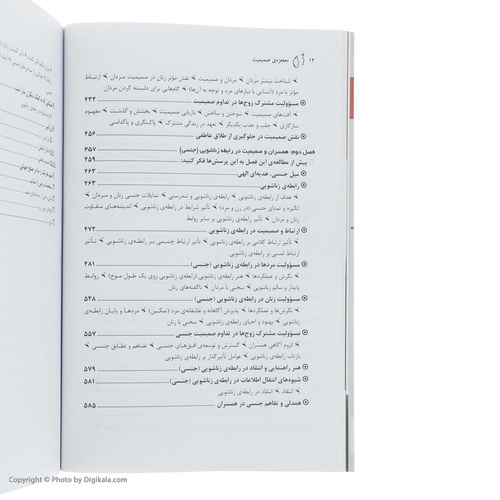 ۱۲ معجزه‌ی صمیمیت
شناخت بیشتر مردان مردان و صمیمیت نقش مؤثر زنان در صمیمیت مردان ارتباط
مؤثر با مرد (آشنایی با نیازهای مرد و توجه به آن‌ها) گام‌هایی برای دلبسته کردن مردان
مسؤولیت مشترک زوج‌ها در تداوم صمیمیت ۴۳۲
آفت‌های صمیمیت سوختن و ساختن بازیابی صمیمیت بخشش و گذشت مفهوم
سازگاری جلب و جذب یکدیگر تعهد در زندگی مشترک پاک‌نگری و پاکدامنی
نقش صمیمیت در جلوگیری از طلاق عاطفی ۴۵۶
فصل دوم: همسران و صمیمیت در رابطه زناشویی (جنسی) ۴۵۷
پیش از مطالعه‌ی این فصل به این پرسش‌ها فکر کنید: ۴۵۹
میل جنسی، هدیه‌ای الهی ۴۶۳
رابطه‌ی زناشویی ۴۶۳
هدف از رابطه‌ی زناشویی رابطه‌ی زناشویی و تندرستی تمایلات جنسی زنان و مردان
انگیزه و تمنای جنسی (در زن و مرد) تأثیر شرایط در رابطه‌ی زناشویی اندیشه‌های متفاوت
زنان و مردان تأثیر رابطه‌ی زناشویی بر سایر روابط
ارتباط و صمیمیت در رابطه‌ی زناشویی ۴۷۳
تأثیر ارتباط کلامی بر رابطه‌ی زناشویی تأثیر ارتباط چشمی بر رابطه‌ی زناشویی تأثیر
ارتباط لمسی بر رابطه‌ی زناشویی
مسؤولیت مردها در رابطه‌ی زناشویی (جنسی) ۴۸۱
نگرش و عملکردها هنر رابطه‌ی زناشویی (رابطه‌ی زناشویی روی یک طول موج) روابط
پایدار و سالم زناشویی سخنی با مردان ناگفته‌های زنان
مسؤولیت زنان در رابطه‌ی زناشویی (جنسی) ۵۲۸
نگرش‌ها و عملکردها پذیرش آگاهانه و عاشقانه‌ی مرد (تمکین) مردها و پایان رابطه‌ی
زناشویی بهبود و احیای رابطه‌ی زناشویی سخنی با زنان
مسؤولیت مشترک زوج‌ها در تداوم صمیمیت جنسی ۵۵۷
لزوم آگاهی همسران گسترش و توسعه‌ی افق‌های جنسی تفاهم و تطابق جنسی
بازتاب رابطه‌ی زناشویی عوامل تأثیرگذار بر رابطه‌ی زناشویی
هنر راهنمایی و انتقاد در رابطه‌ی زناشویی (جنسی) ۵۷۹
شیوه‌های انتقال اطلاعات در رابطه‌ی زناشویی (جنسی) ۵۸۱
انتقاد انتقاد در رابطه‌ی زناشویی
همدلی و تفاهم جنسی در همسران ۵۸۵
Copyright © Photo by Digikala.com